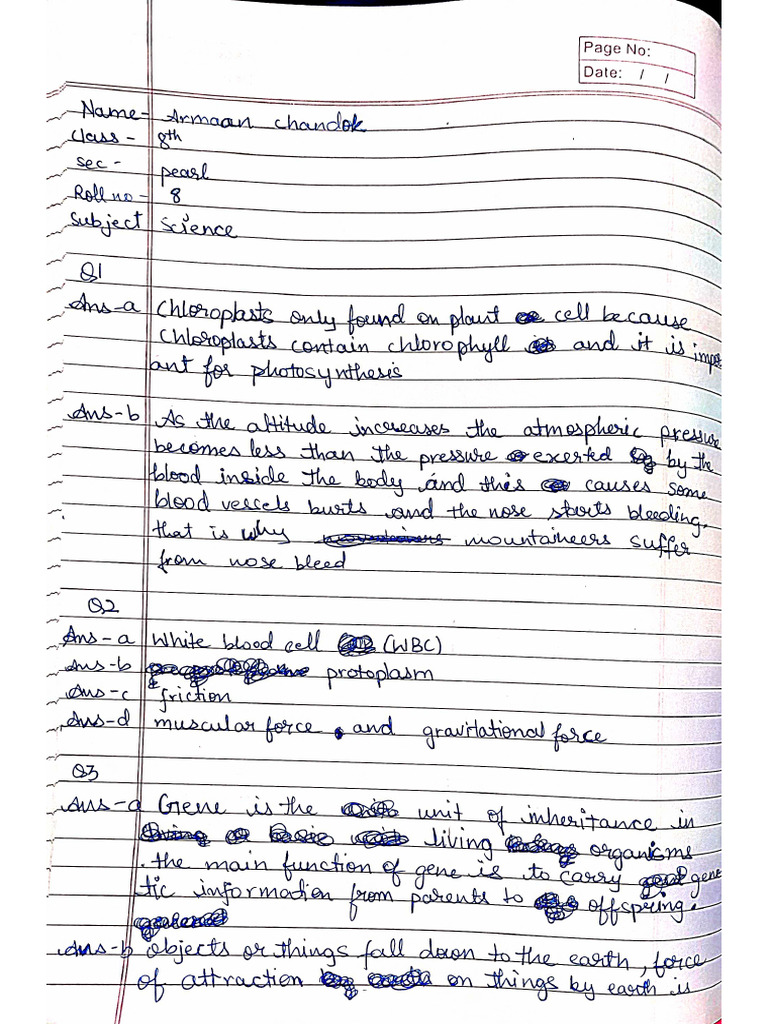 Page No:
Date: / /
Name- Armaan Chandok
Class - 8th
Sec - pearl
Roll no - 8
Subject Science
Q1
Ans-a Chloroplasts only found on plant cell because
Chloroplasts contain chlorophyll and it is import
ant for photosynthesis
Ans-b As the altitude increases the atmospheric pressure
becomes less than the pressure exerted by the
blood inside the body and this causes some
blood vessels burts and the nose starts bleeding.
that is why mountaineers suffer
from nose bleed
Q2
Ans-a White blood cell (WBC)
Ans-b protoplasm
Ans-c friction
Ans-d muscular force and gravitational force
Q3
Ans-a Gene is the unit of inheritance in
living organisms
.the main function of gene is to carry gene
tic information from parents to offspring.
Ans-b objects or things fall down to the earth, force
of attraction on things by earth is